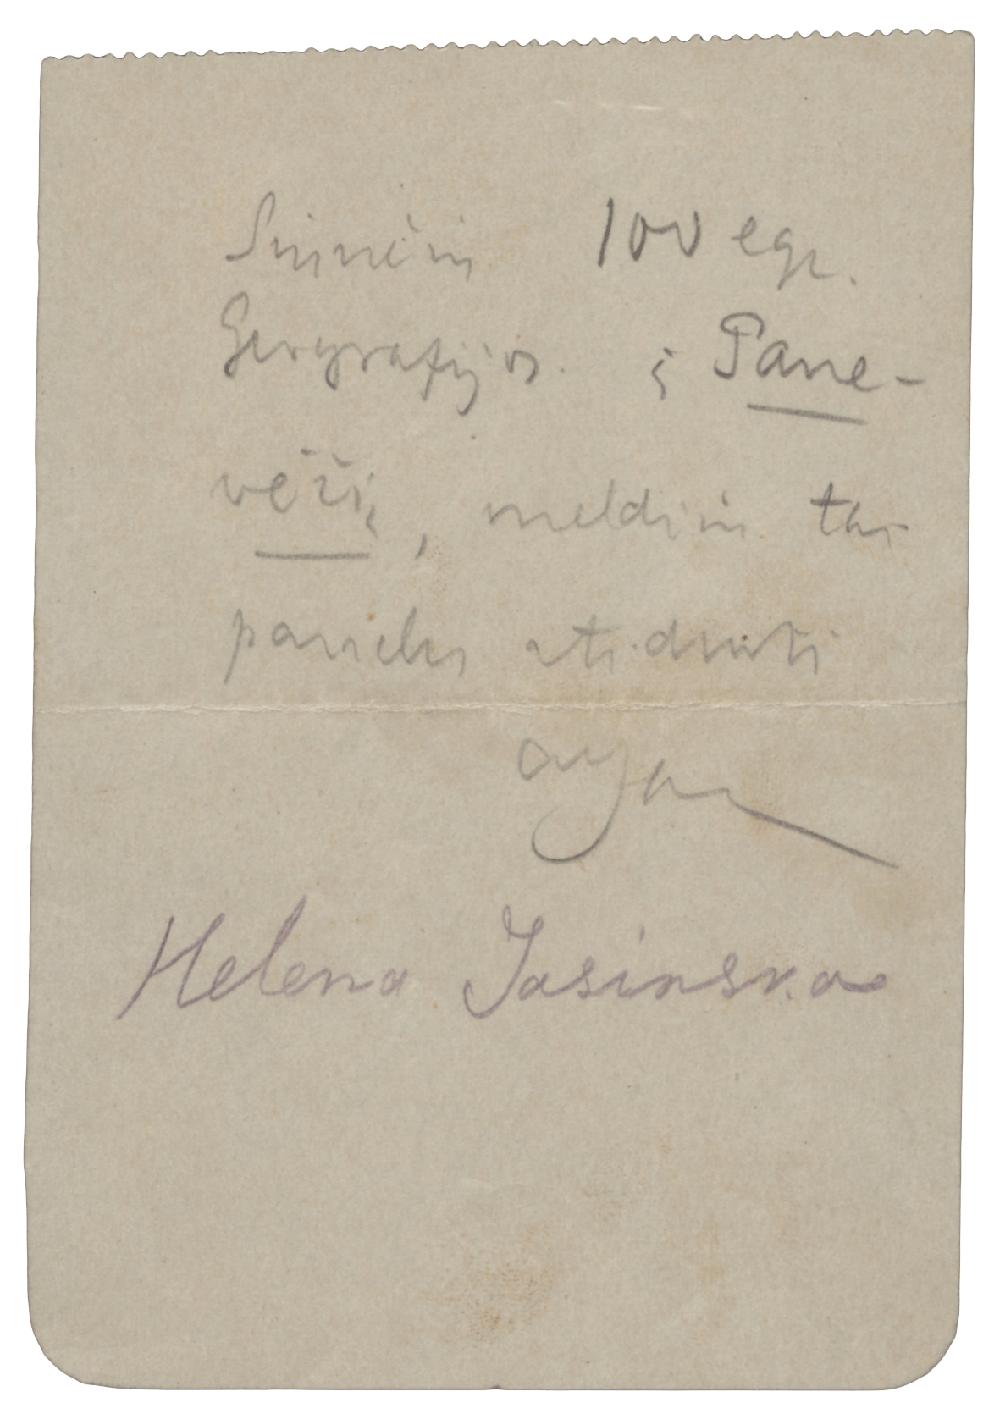 Siunčiu 100 egz.
Geografijos į Pane-
vėžį, meldžiu tas
paneles atiduoti
Helena Jasinska